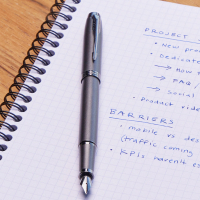 PROJECT
• New pro
• Dedicate
→ How t
→ FAQ /
→ Social
• Product vide
BARRIERS
• Mobile vs des
(traffic coming
• KPIs haven't e